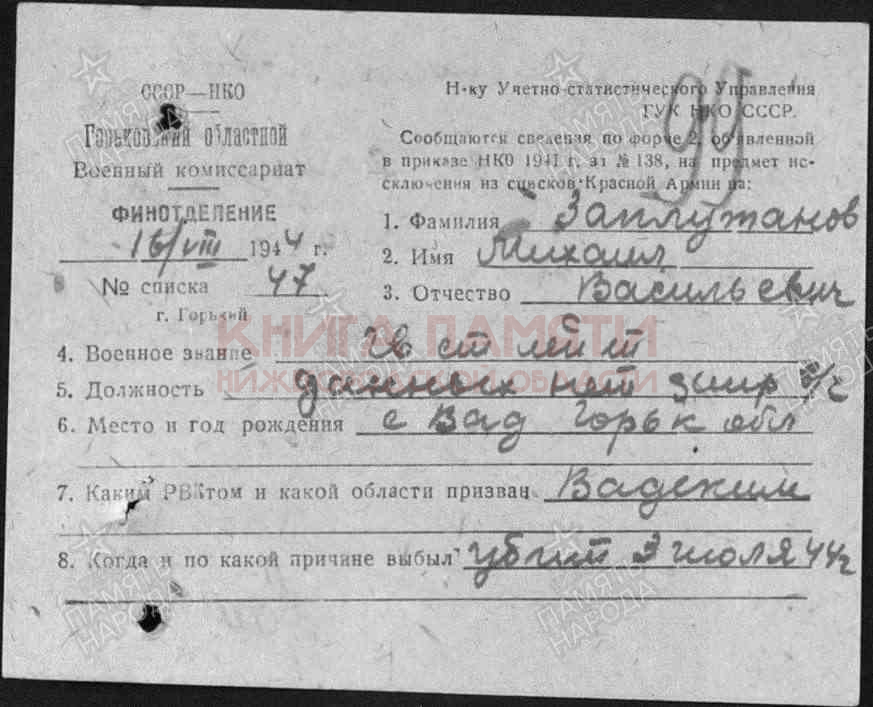 СССР—НКО
Горьковский областной
Военный комиссариат
ФИНОТДЕЛЕНИЕ
16/VIII 1944 г.
№ списка 47
г. Горький
Н-ку Учетно-статистического Управления
ГУК НКО СССР.
99
Сообщаются сведения по форме 2, об'явленной
в приказе НКО 1941 г. за № 138, на предмет ис-
сключения из списков Красной Армии на:
1. Фамилия Заплутанов
2. Имя Михаил
3. Отчество Васильевич
4. Военное звание гв ст лейт
5. Должность данных нет
6. Место и год рождения с Вад Горьк обл
7. Каким РВКтом и какой области призван Вадским
8. Когда и по какой причине выбыл убит 3 июля 44 г
КНИГА ПАМЯТИ
НИЖЕГОРОДСКОЙ ОБЛАСТИ
ПАМЯТЬ НАРОДА